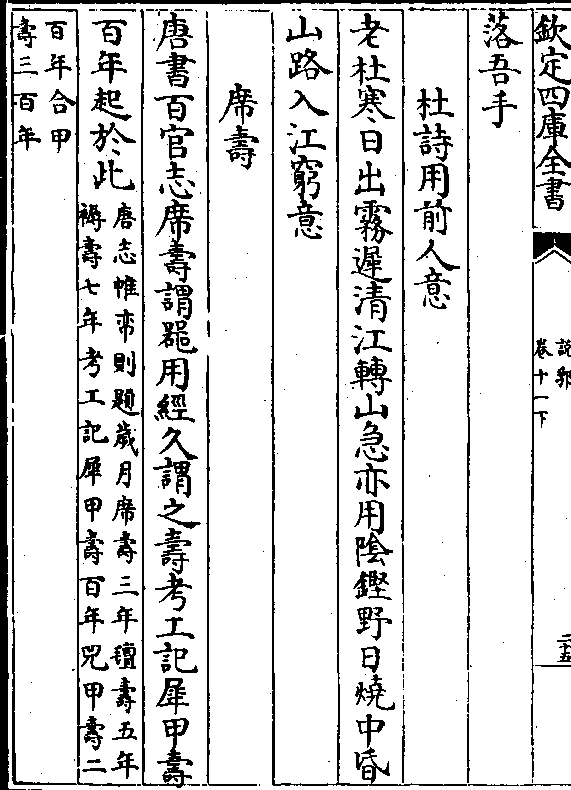 欽定四庫全書
說郛
卷十一下
二十五
落吾手
杜詩用前人意
老杜寒日出霧遲清江轉山急亦用陰鏗野日燒中昏
山路入江窮意
席壽
唐書百官志席壽謂噐用經久謂之壽考工記犀甲壽
百年起於此
唐志帷帟則題歲月席壽三年氊壽五年
褥壽七年考工記犀甲壽百年兕甲壽二
百年合甲
壽三百年